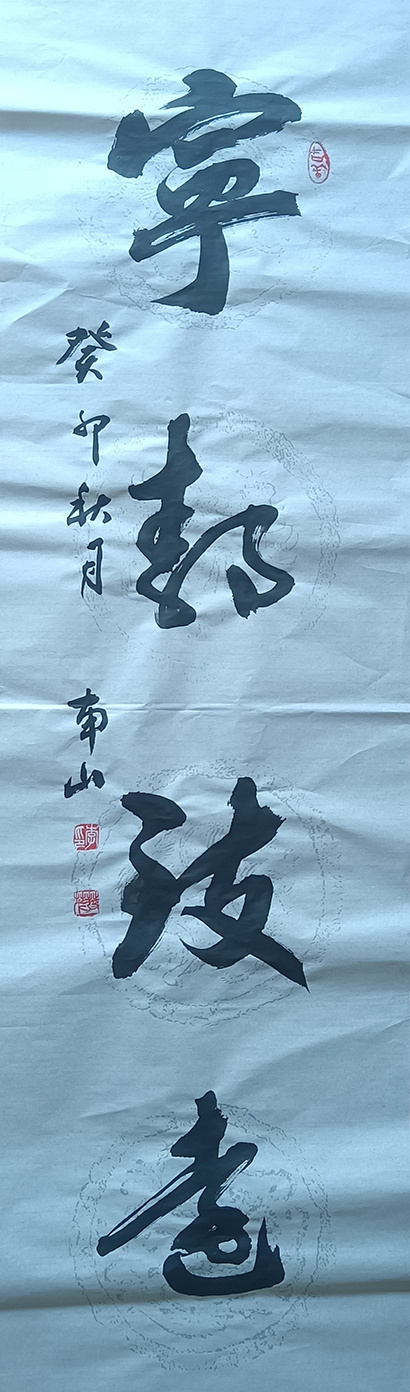 寧靜致遠
癸卯秋月 南山